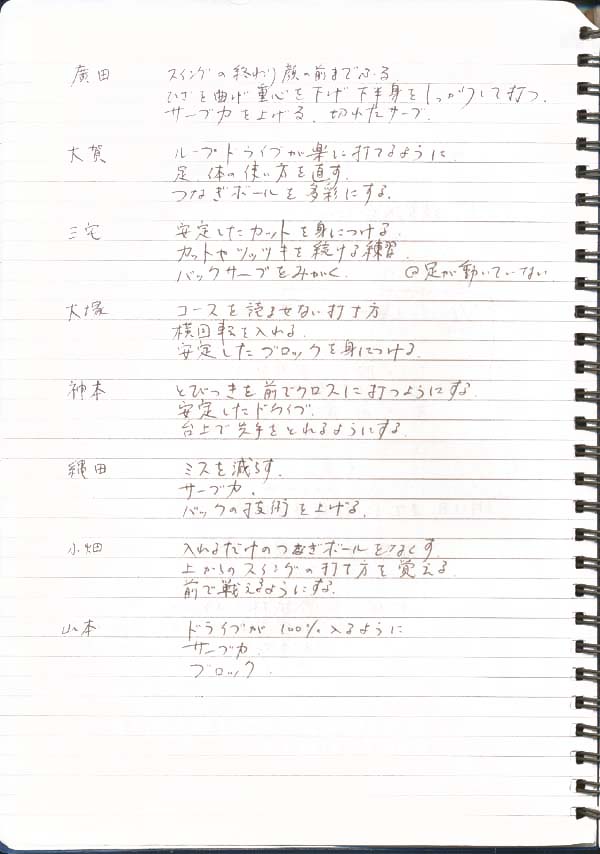 廣田 スイングの終わり顔の前までふる.
ひざを曲げ重心を下げ下半身をしっかりして打つ.
サーブ力を上げる. 切れたサーブ.
大賀 ループドライブが楽に打てるように
足. 体の使い方を直す.
つなぎボールを多彩にする.
三宅 安定したカットを身につける.
カットやツッツキを続ける練習.
バックサーブをみがく. @足が動いていない
大塚 コースを読ませない打ち方
横回転を入れる.
安定したブロックを身につける.
神本 とびつきを前でクロスに打つようにする
安定したドライブ.
台上で先手をとれるようにする.
縄田 ミスを減らす.
サーブ力.
バックの技術を上げる.
小畑 入れるだけのつなぎボールをなくす.
上からのスイングの打ち方を覚える
前で戦えるようにする.
山本 ドライブが100%入るように
サーブ力.
ブロック.